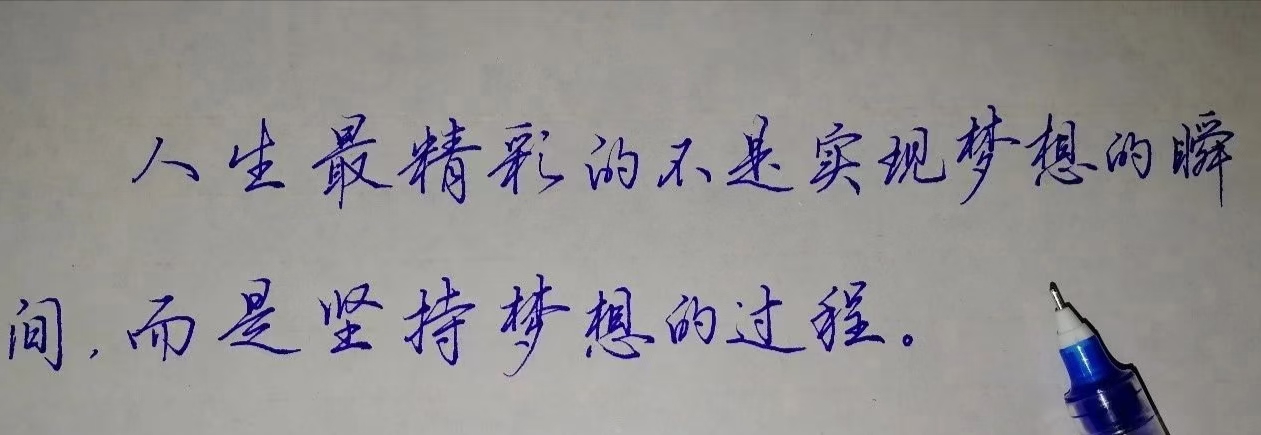 人生最精彩的不是实现梦想的瞬
间,而是坚持梦想的过程。